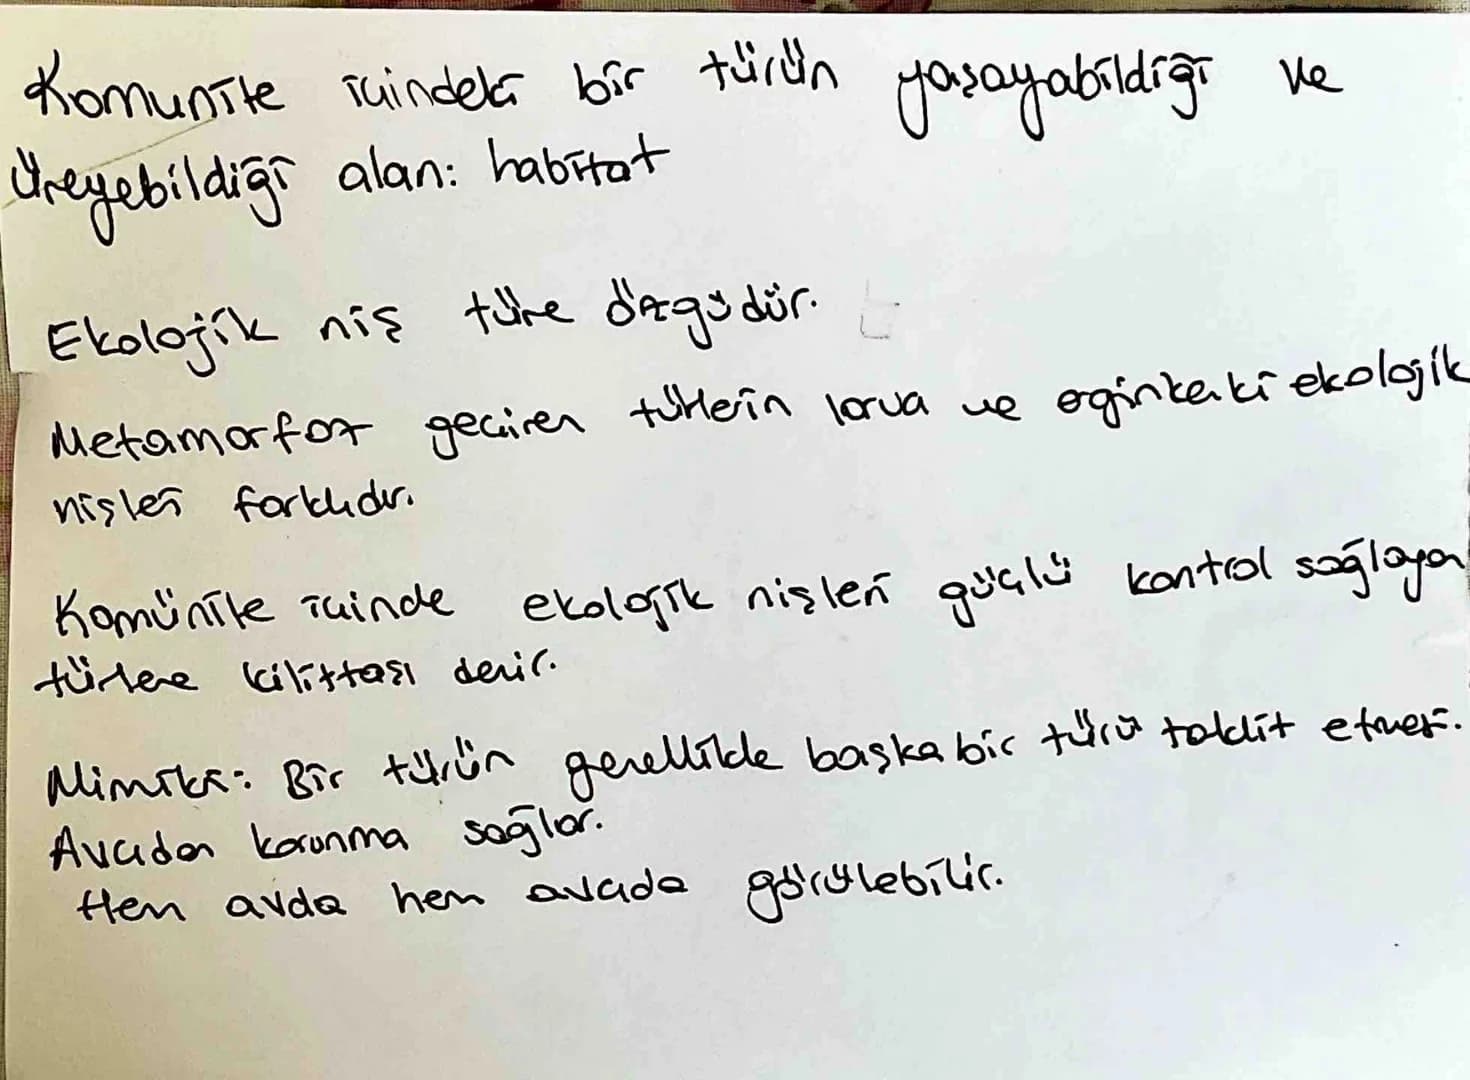 Komunite içindeki bir türün yaşayabildiği ve
üreyebildiği alan: habitat
Ekolojik niş türe özgüdür.
Metamorfoz geçiren türlerin larva ve erginkenki ekolojik
nişleri farklıdır.
Komünite içinde ekolojik nişleri güçlü kontrol sağlayan
türlere kilittaşı denir.
Mimikri: Bir türün genellikle başka bir türü taklit etmesi.
Avcıdan korunma sağlar.
Hem avda hem avcıda görülebilir.